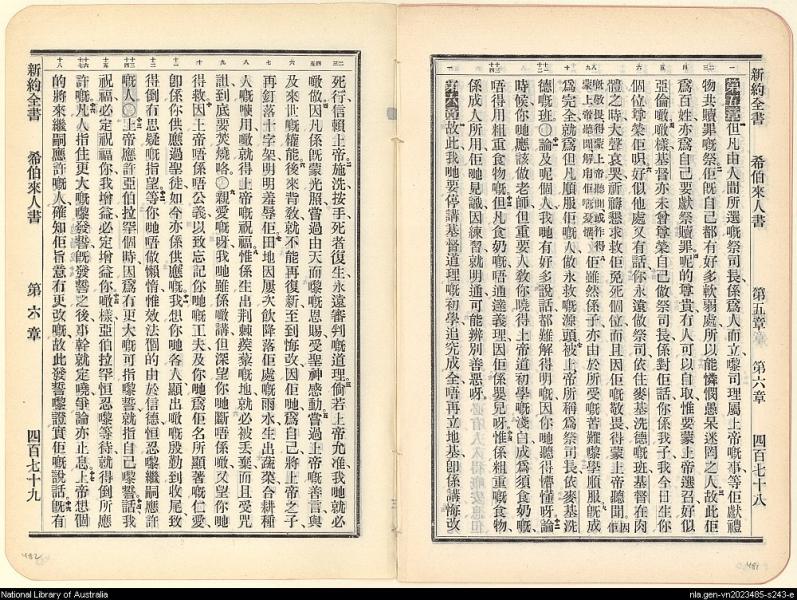 新約全書 希伯來人書 第五章 第六章 四百七十八
第五章但凡由人間所選嘅祭司長係爲人而立嚟司理屬上帝嘅事等佢獻禮
物共贖罪嘅祭佢旣自己都有好多軟弱處所以能憐憫愚呆迷罔之人故此佢
爲百姓亦爲自己要獻祭贖罪呢的尊貴有人可以自取惟要蒙上帝選召好似
亞倫噉樣基督亦未曾尊榮自己做祭司長係對佢話你係我子我今日生你
個位尊榮佢好似他處又有話你永遠做祭司依住麥基洗德嘅班基督在肉
體之時大聲哀哭祈禱懇求救佢免死個位而且因佢嘅敬畏得蒙上帝聽聞
佢雖然係子亦由於所受嘅苦難嚟學順服旣成
爲完全就爲但凡順服佢嘅人做永救嘅源頭被上帝所稱爲祭司長依麥基洗
德嘅班○論及呢個人我哋有好多說話都難解得明嘅因你哋聽得懵懂呀論
時候你哋應該做老師但重要人敎你哋曉得上帝道初學嘅淺白成爲須食奶嘅
唔得用粗重食物嘅但凡食奶嘅唔通達義理因佢係嬰兒呀惟係粗重嘅食物
係成人所用佢哋見識因練習就明通可能辨別善惡呀
第六章故此我哋要停講基督道理嘅初學追完成全唔再立地基卽係講悔改
死行信賴上帝施洗按手死者復生永遠審判嘅道理倘若上帝允准我哋就必
噉做因凡係旣蒙光照嘗過由天而嚟嘅恩賜受聖神感動嘗過上帝嘅善言與
及來世嘅權能後來背敎就不能再復新至到悔改因佢哋爲自己將上帝之子
再釘落十字架明明羞辱佢田地因屢次飲降落佢處嘅雨水生出蔬菜合耕種
人嘅嗰用噉就得上帝嘅祝福惟係生出荆棘蒺藜嘅地就必被丟棄而且受咒
詛到底要焚燒咯○親愛嘅呀我哋雖係噉講但深望你哋斷唔係噉又望你哋
得救因上帝唔係唔公義以致忘記你哋嘅工夫及你哋爲佢名所顯著嘅仁愛
卽係你供應過聖徒如今亦係供應嘅我想你哋各人顯出噉嘅殷勤到收尾致
得倒有思疑嘅指望等你哋唔做懶惰惟效法個的由於信德恒忍嚟繼嗣應許
嘅人○上帝應許亞伯拉罕個時因爲有更大嘅可指嚟發誓就指自己嚟誓話我
祝福必定祝福你我增益必定增益你噉樣亞伯拉罕恒忍嚟等待就得倒所應
許嘅凡人指住更大嘅嚟發誓旣發誓之後事幹就定曉爭論亦止息上帝想個
的將來繼嗣應許嘅人確知佢旨意有更改嘅故此發誓嚟證實佢嘅說話旣有
新約全書 希伯來人書 第六章 四百七十九
482
481
National Library of Australia
nla.gen-vn2023485-s243-e